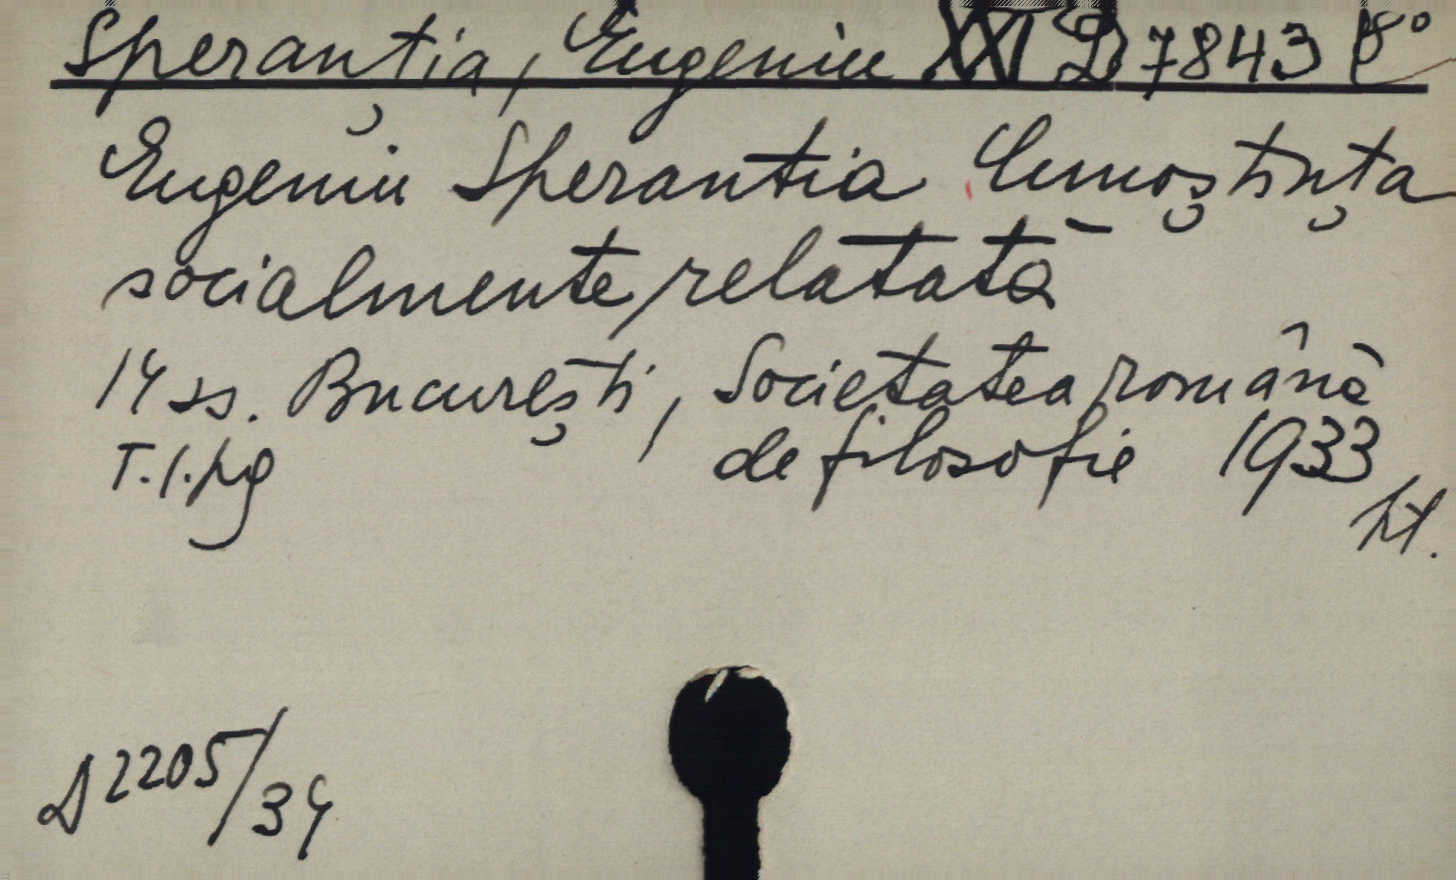 Speranția, Eugeniu XXI D 7843 8°
Eugeniu Sperantia Cunoștința
socialmente relatată
14 ss. București, Societatea română
de filosofie 1933
T. I. pg
D 2205/34